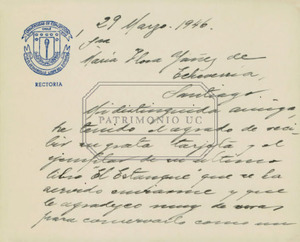 29 Marzo. 1946.
Sra
María Flora Yáñez de
Echeverría,
Santiago.
Mi distinguida amiga,
he tenido el agrado de reci
bir su grata tarjeta y el
ejemplar de su último
libro "El Estanque" que se ha
servido enviarme y que
le agradezco muy de veras
para conservarlo como un
RECTORIA
PATRIMONIO UC